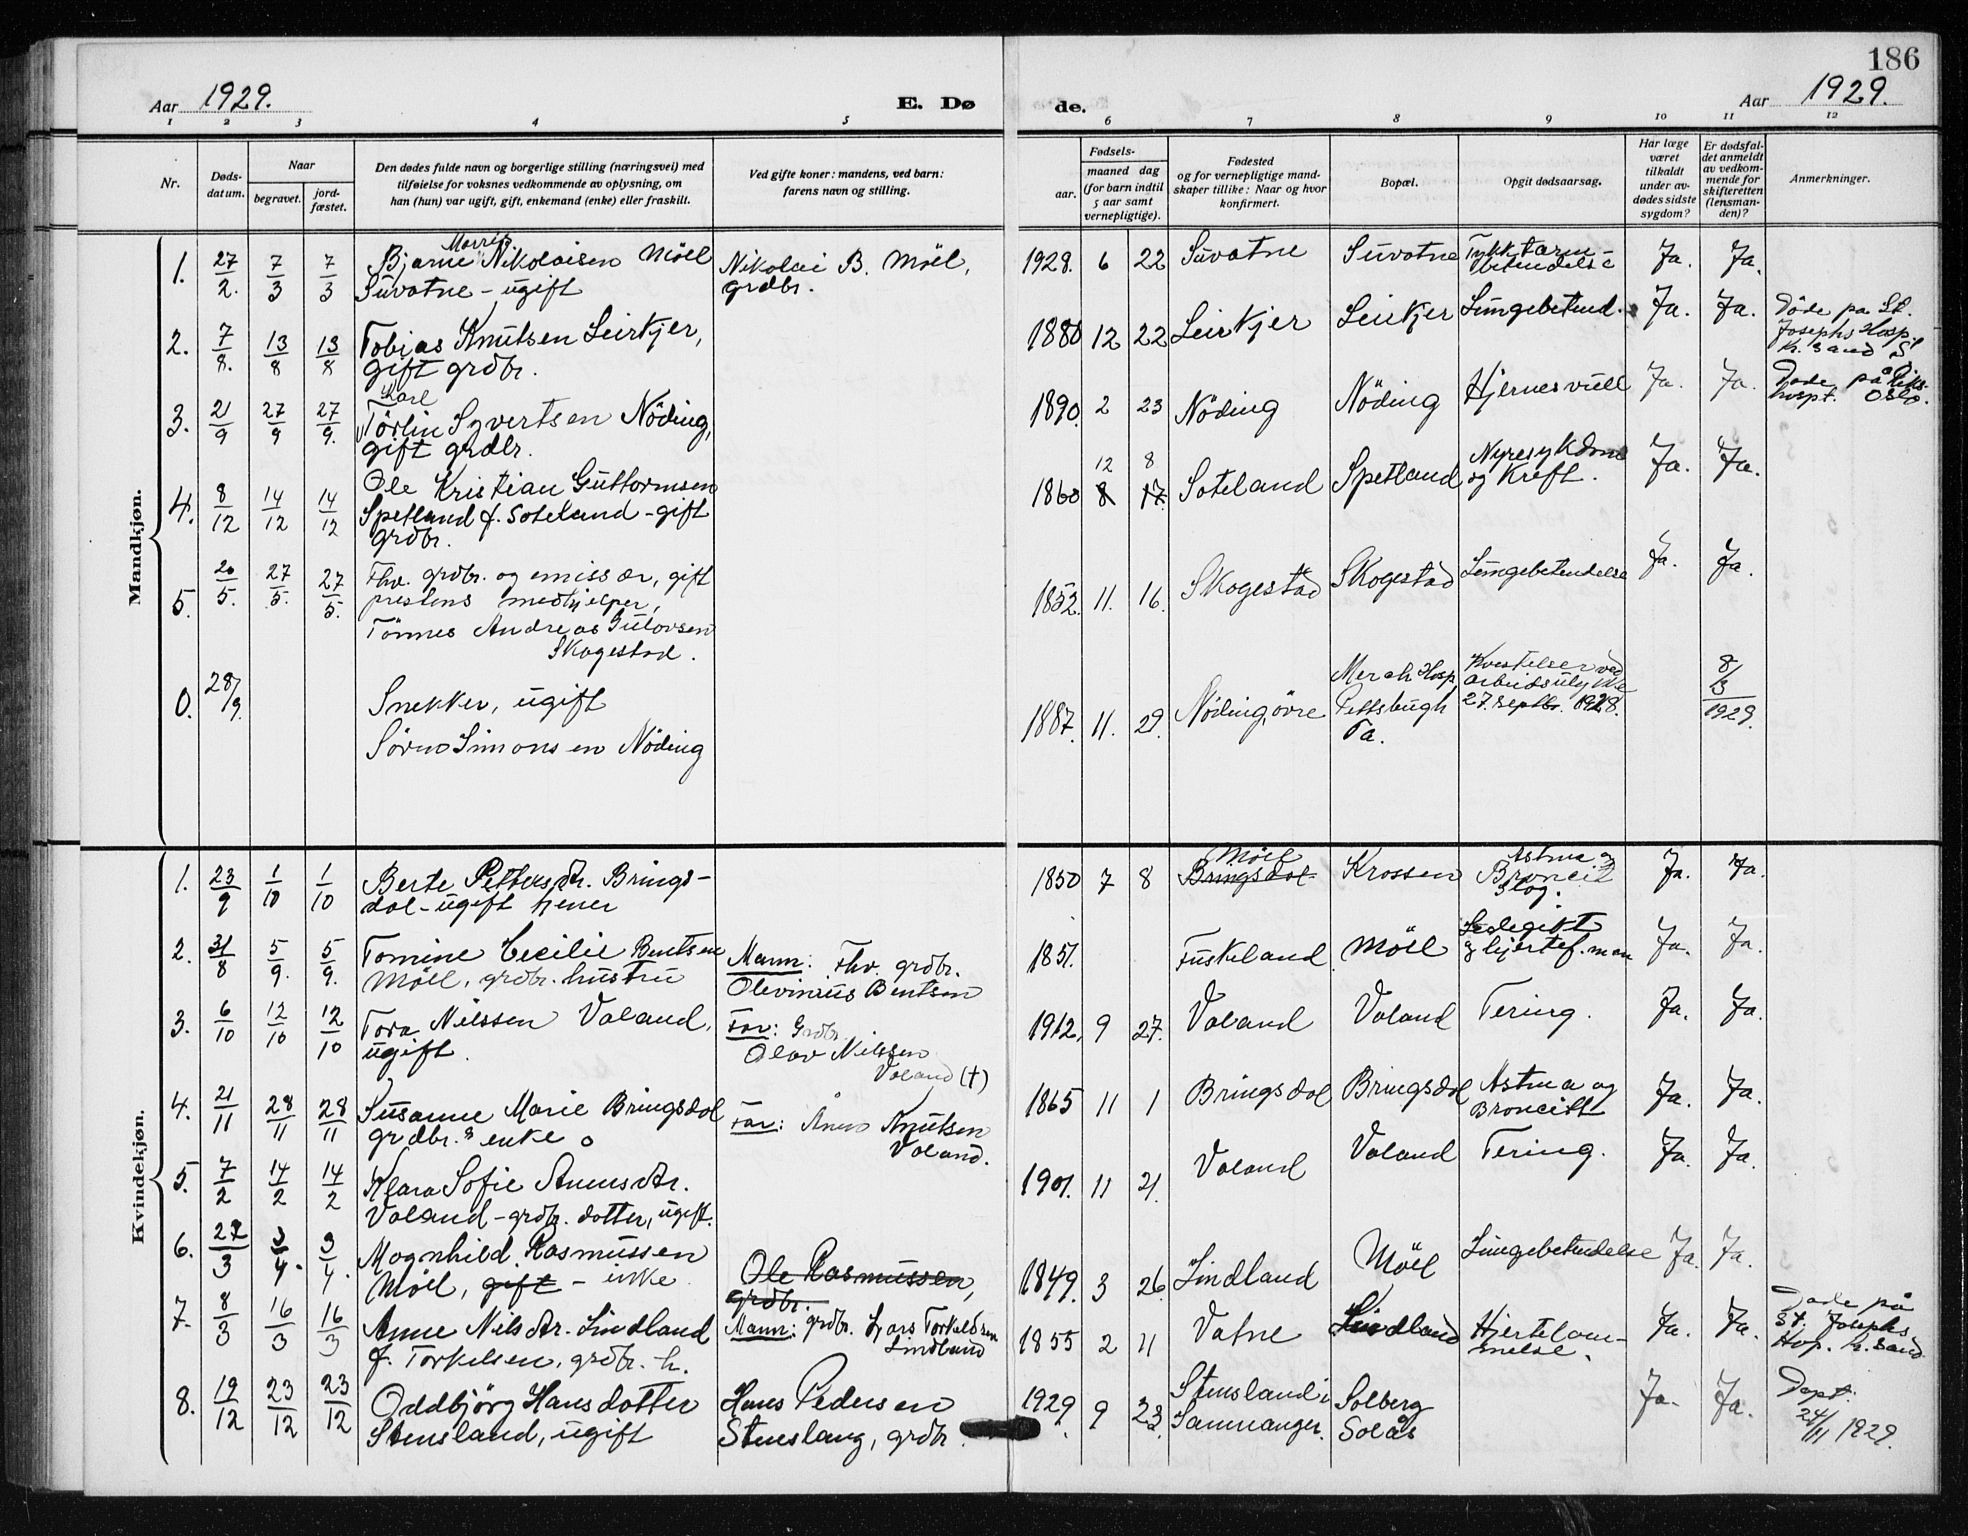 186
Aar 1929.
E. Døde.
Aar 1929.
1 2 3 4 5 6 7 8 9 10 11 12
Nr.
Døds-
datum.
Naar
begravet.
jord-
fæstet.
Den dødes fulde navn og borgerlige stilling (næringsvei) med
tilføielse for voksnes vedkommende av oplysning, om
han (hun) var ugift, gift, enkemand (enke) eller fraskilt.
Ved gifte koner: mandens, ved barn:
farens navn og stilling.
Fødsels-
aar.
maaned dag
(for barn indtil
5 aar samt
vernepligtige).
Fødested
og for vernepligtige mand-
skaper tillike: Naar og hvor
konfirmert.
Bopæl.
Opgit dødsaarsag.
Har læge
været
tilkaldt
under av-
dødes sidste
sygdom?
Er dødsfal-
det anmeldt
av vedkom-
mende for
skifteretten
(lensman-
den)?
Anmerkninger.
Mandkjøn.
1. 27/2. 7/3 7/3
Bjarne Nikolaisen Möll
Suvatne - ugift
Nikolai B. Möll,
grdbr.
1928. 6 22 Suvatne Suvatne Tykktarm-
betendelse
Ja. Ja.
2. 7/8. 13/8 13/8
Tobias Knutsen Leirkjer,
gift grdbr.
1880 12 22 Leirkjer Leirkjer Lungebetend. Ja. Ja.
Döde på St.
Josephs Hosp.
Kr.sand S
3. 21/9 27/9 27/9.
Karl
Törlin Syvertsen Nöding,
gift grdbr.
1890. 2 23 Nöding Nöding Hjernesvull Ja. Ja.
Døde på Riks-
hospt. Oslo.
4. 8/12 14/12 14/12
Ole Kristian Guttormsen
Spetland f. Soteland - gift
grdbr.
12 8
1860 8 17. Soteland Spetland Nyresykdom
og Kreft.
Ja. Ja.
5. 20/5. 27/5. 27/5.
Fhv. grdbr. og emissær, gift
prestens medhjelper,
Tönnes Andreas Gulovsen
Skogestad.
1852. 11. 16. Skogestad Skogestad Lungebetendelse Ja. Ja.
0. 28/9.
Snekker, ugift
Sørn Simonsen Nöding
1887. 11. 29. Nöding, övre
Hosp
Pittsburgh
Pa.
Kvestelser ved
arbeidsulykke
27. septbr. 1928.
8/3
1929.
Kvindekjøn.
1. 23/9 1/10 1/10
Berte Pettersdtr. Brings-
dal - ugift tjener
1850 7 8 Möll
Bringsdal
Krossen
Astma og
Broncit
Slag.
Ja. Ja.
2. 31/8 5/9. 5/9.
Tomine Cecilie Bentsen
Möll, grdbr. hustru
Mann: Fhv. grdbr.
Olevinius Bentsen
1851. Fuskeland Möll Ledegikt
og hjertef.
Ja. Ja.
3. 6/10 12/10 12/10
Tora Nilssen Valand,
ugift.
Far: Grdbr.
Olav Nilssen
Valand (†)
1912, 9 27. Valand Valand Tering. Ja. Ja.
4. 21/11 28/11 28/11
Susanne Marie Bringsdal
grdbr.s enke
1865 11 1 Bringsdal Bringsdal Astma og
Broncitt
Ja. Ja.
5. 7/2 14/2 14/2
Klara Sofie Anensdtr.
Valand - grdbr. dotter, ugift.
Far: Anen Knutsen
Valand.
1901. 11 21. Valand Valand Tering. Ja. Ja.
6. 27/3 3/4. 3/4.
Magnhild Rasmussen
Möll, gift - enke
Ole Rasmussen,
grdbr.
1849. 3 26. Lindland Möll Lungebetendelse Ja. Ja.
7. 8/3 16/3 16/3
Anne Nilsdtr. Lindland
f. Torkelsen, grdbr. h.
Mann: grdbr. Lars Torkeldsen
Lindland
1855 2 11 Vatne Lindland Hjertelam-
melse.
Ja. Ja.
Døde på
St. Josephs
Hop. Kr.sand
8. 19/12 23/12 23/12
Oddbjörg Hansdotter
Stensland, ugift
Hans Pedersen
Stensland, grdbr.
1929. 9 23. Stensland i
Samnanger.
Solberg
Solås
Ja. Ja.
Døpt.
24/11 1929.